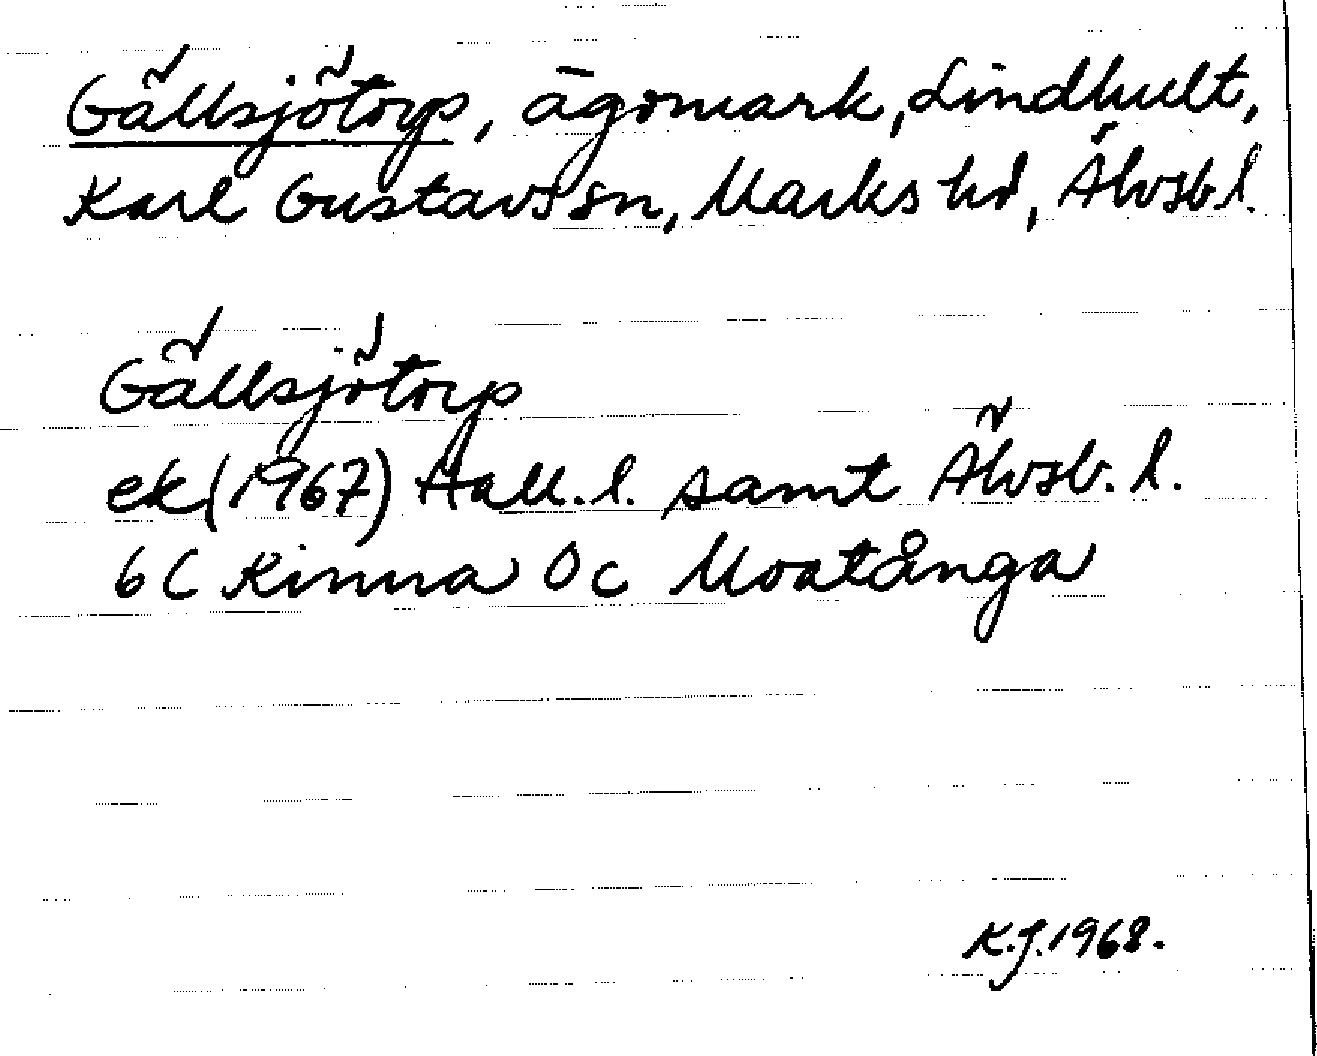 Gällsjötorp, ägomark, Lindhult,
Karl Gustavs sn, Marks hd, Älvsb.l.
Gällsjötorp
ek (1967) Hall.l. samt Älvsb.l.
6C Kinna 0c Moatånga
K.J. 1968.